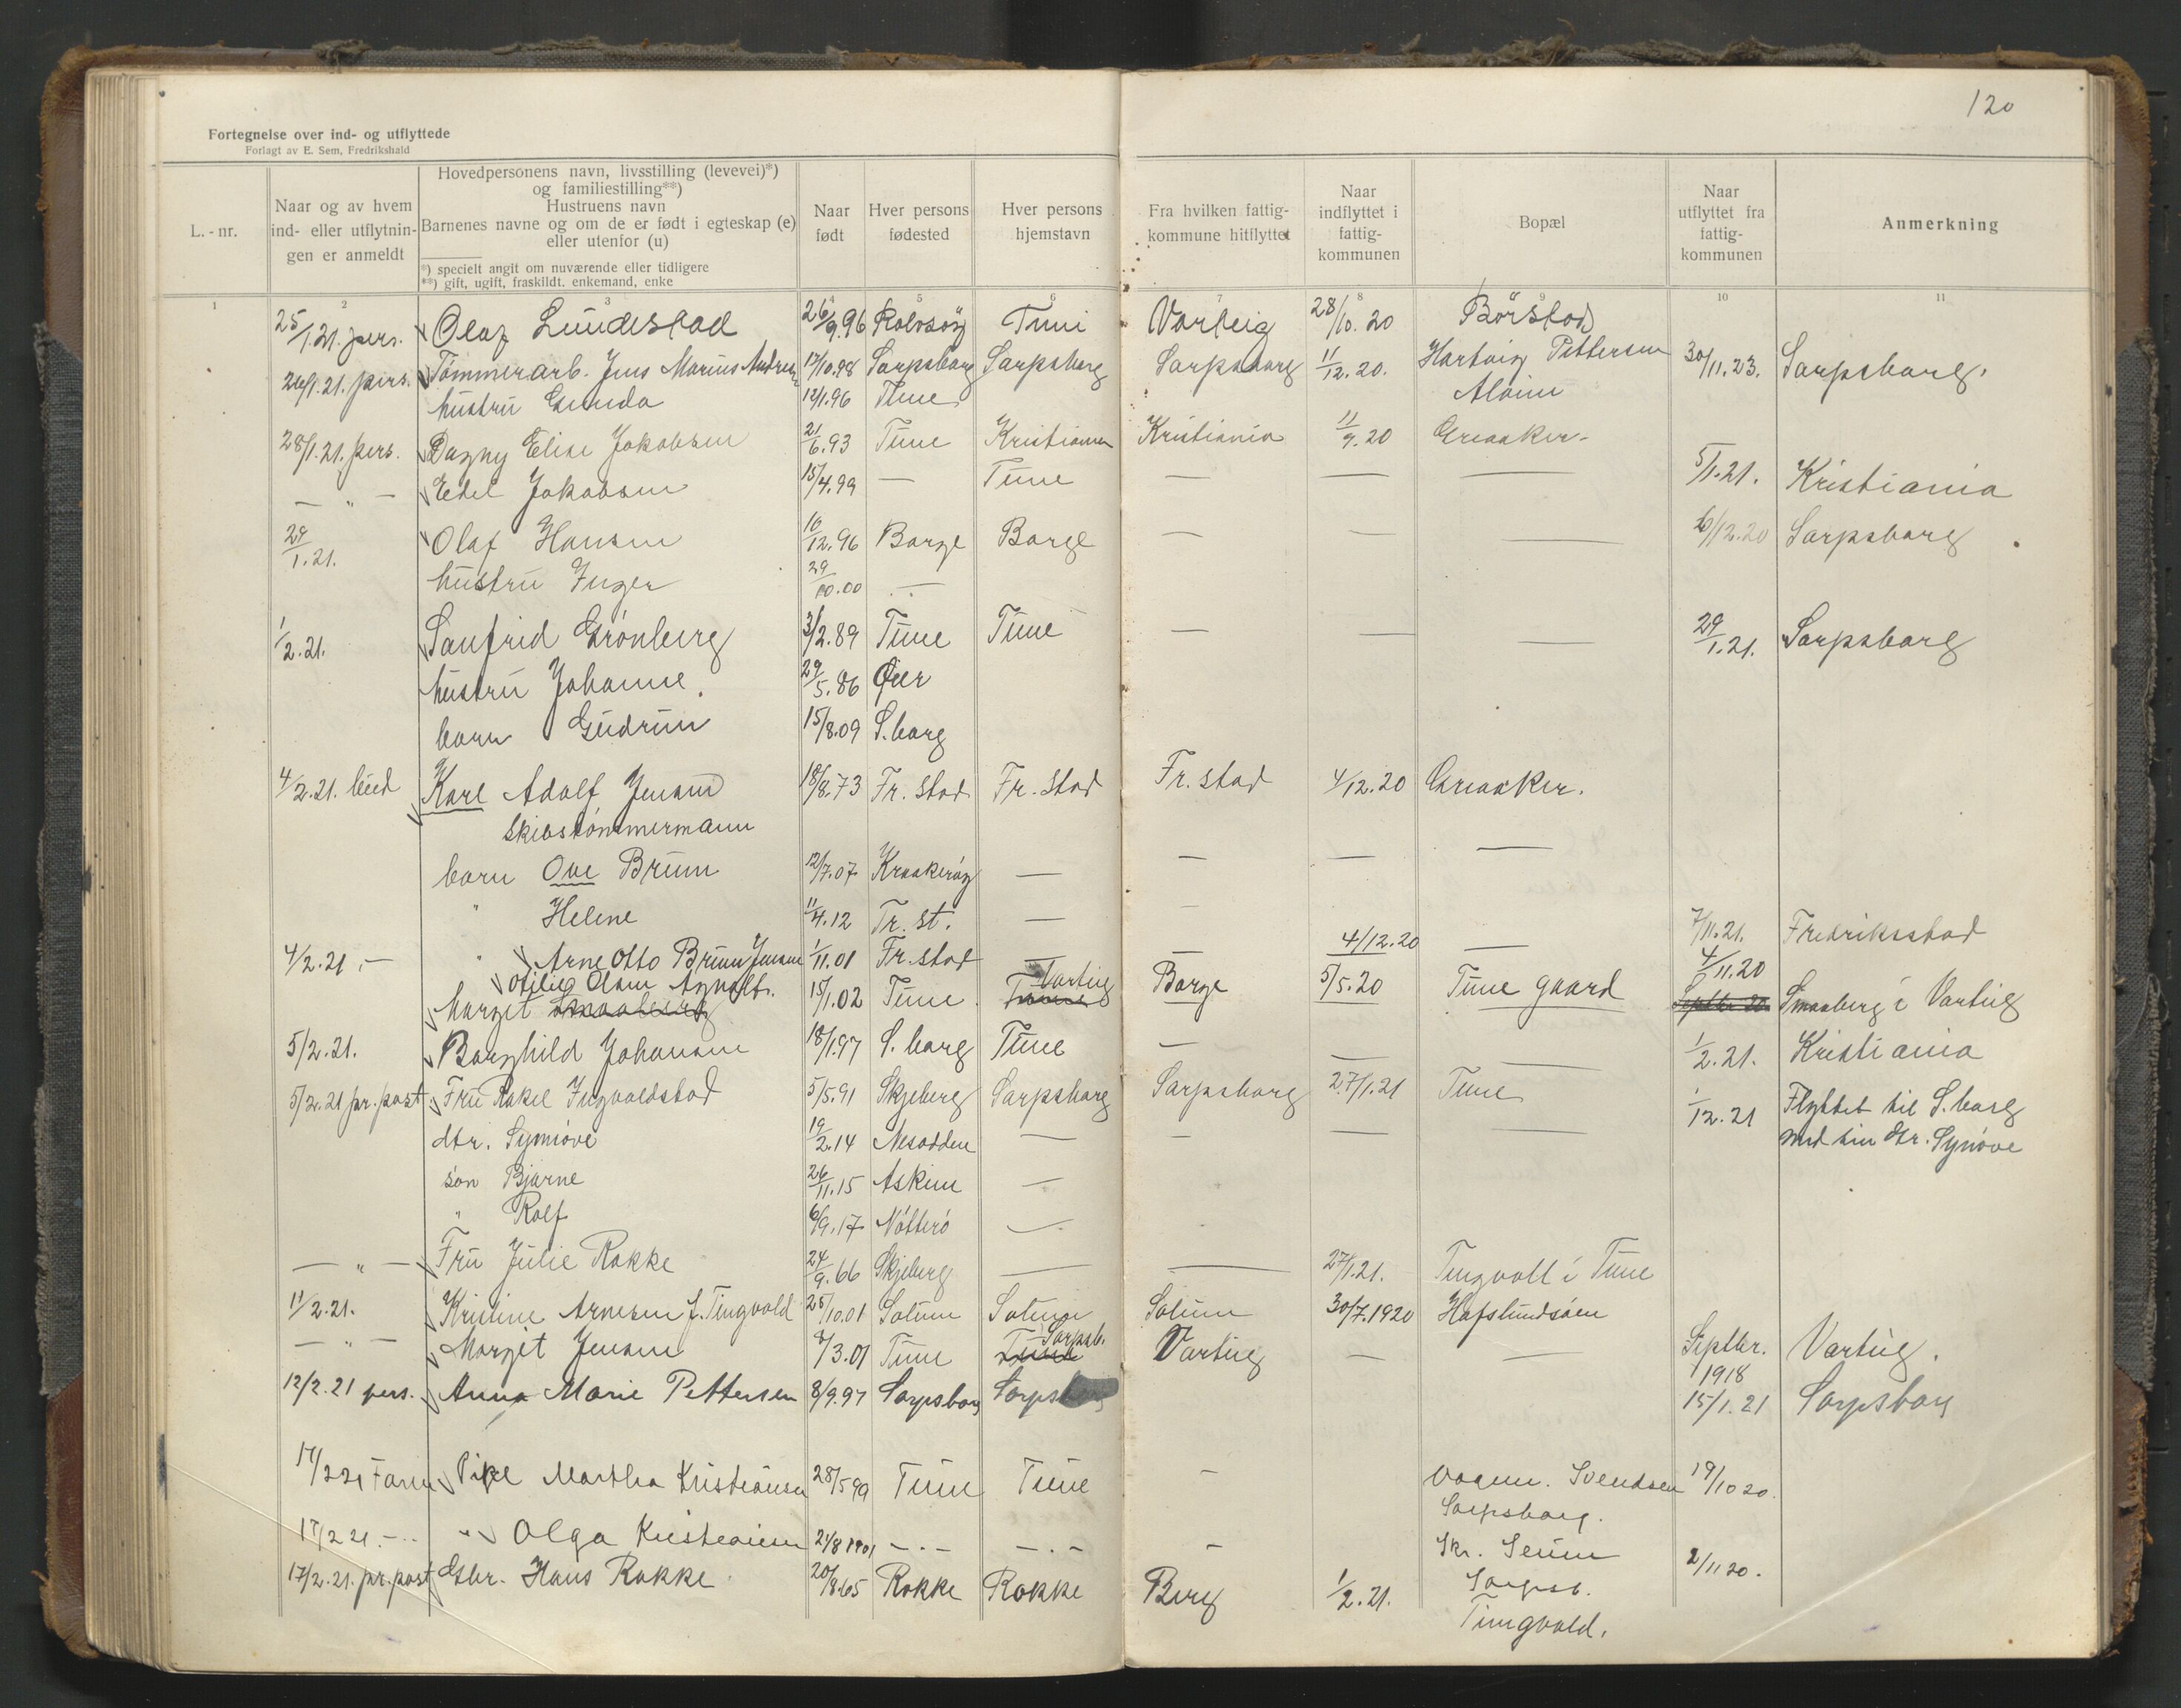 120
Fortegnelse over ind- og utflyttede
Forlagt av E. Sem, Fredrikshald
L.-nr.
Naar og av hvem ind- eller utflytnin- gen er anmeldt
Hovedpersonens navn, livsstilling (levevei)*)
og familiestilling**)
Hustruens navn
Barnenes navne og om de er født i egteskap (e)
eller utenfor (u)
*) specielt angit om nuværende eller tidligere
**) gift, ugift, fraskildt. enkemand, enke
Naar født
Hver persons fødested
Hver persons hjemstavn
Fra hvilken fattig- kommune hitflyttet
Naar indflyttet i fattig- kommunen
Bopæl
Naar utflyttet fra fattig- kommunen
Anmerkning
1 2 3 4 5 6 7 8 9 10 11
25/1.21. pers. Olaf Lundestad 26/9.96 Rolvsøy Tune Varteig 28/10.20 Börstad
26/1.21. pers. Tømmerarb. Jens Marius Andresen 17/10.88 Sarpsborg Sarpsborg Sarpsborg 11/12.20. Hartvig Pettersen 30/11.23. Sarpsborg.
hustru Gunda 12/1.96 Tune Alvim
28/1.21. pers. Dagny Elise Jakobsen 21/6.93 Tune Kristiania Kristiania 11/9.20 Greaaker.
— " — Edel Jakobsen 15/4.99 — Tune — — — 5/1.21. Kristiania
29/1.21. Olaf Hansen 10/12.96 Borge Borge — — — 6/12.20 Sarpsborg
hustru Inger 29/10.00 —
1/2.21. Sanfrid Grönberg 3/2.89 Tune Tune — — — 29/1.21. Sarpsborg
hustru Johanne. 29/5.86 Øier
barn Gudrun 15/8.09 S.borg
4/2.21. bud Karl Adolf Jensen 18/8.73 Fr. Stad Fr. Stad Fr. stad 4/12.20 Greaaker.
Skibstømmermann
barn Ove Bruun 12/7.07 Kraakerøy — — — —
" Helene 11/4.12 Fr. st. — —
4/2.21. — " Arne Otto Bruun Jensen 1/11.01 Fr. stad — — 4/12.20 — 7/11.21. Fredriksstad
Otilie Olava Agnalt. Varteig 4/11.20
Margit Smaaberg 15/1.02 Tune Tune Borge 5/5.20 Tune gaard Septbr 20 Smaaberg i Varteig
5/2.21. Borghild Johansen 18/1.97 S. borg Tune — — — 1/2.21. Kristiania
5/2.21 pr. post Fru Rakel Ingvaldstad 5/5.91 Skjeberg Sarpsborg Sarpsborg 27/1.21 Tune 1/12.21 Flyttet til S.borg
dtr. Synnöve 19/2.14 Nesodden — — — — med sin dtr. Synöve
sön Bjarne 26/11.15 Askim —
" Rolf 6/9.17 Nötterö —
— " — Fru Julie Rokke 24/9.66 Skjeberg — — 27/1.21. Tingvoll i Tune
11/2.21. Kristine Arnesen f. Tingvold 25/10.01 Solum Solum Solum 30/7.1920 Hafslundsöen
— " — Margit Jensen 9/3.01 Tune Tune Sarpsb. Varteig — — Septbr. 1918 Varteig.
12/2.21 pers. Anna Marie Pettersen 8/9.97 Sarpsborg Sarpsborg 15/1.21 Sarpsborg
17/2 21 Faren Pike Martha Kristiansen 28/5 99 Tune Tune — Vognm. Svendsen 19/10 20.
Sarpsborg.
17/2 21. — " Olga Kristiansen 21/8 1901 — " — — " — — Skr. Seium 2/11 20.
Sarpsb.
17/2.21. pr. post Gbr. Hans Rokke 20/8.65 Rokke Rokke Berg 1/2.21. Tingvold.